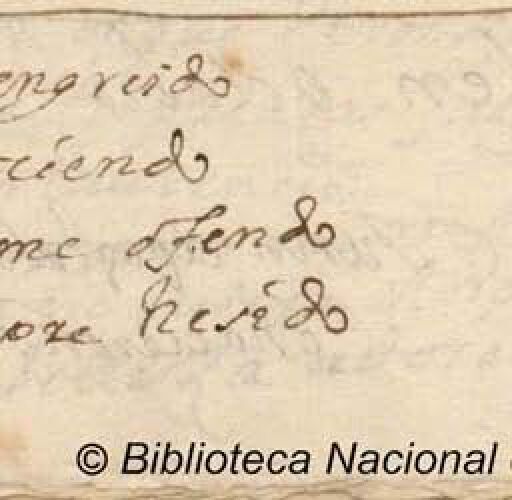 engreido
ciendo
me ofendo
ore
© Biblioteca Nacional